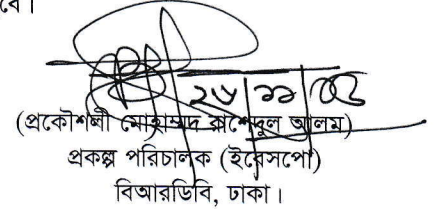 বে।
(প্রকৌশলী মোহাম্মদ রাশেদুল আলম)
প্রকল্প পরিচালক (ইরেসপো)
বিআরডিবি, ঢাকা।